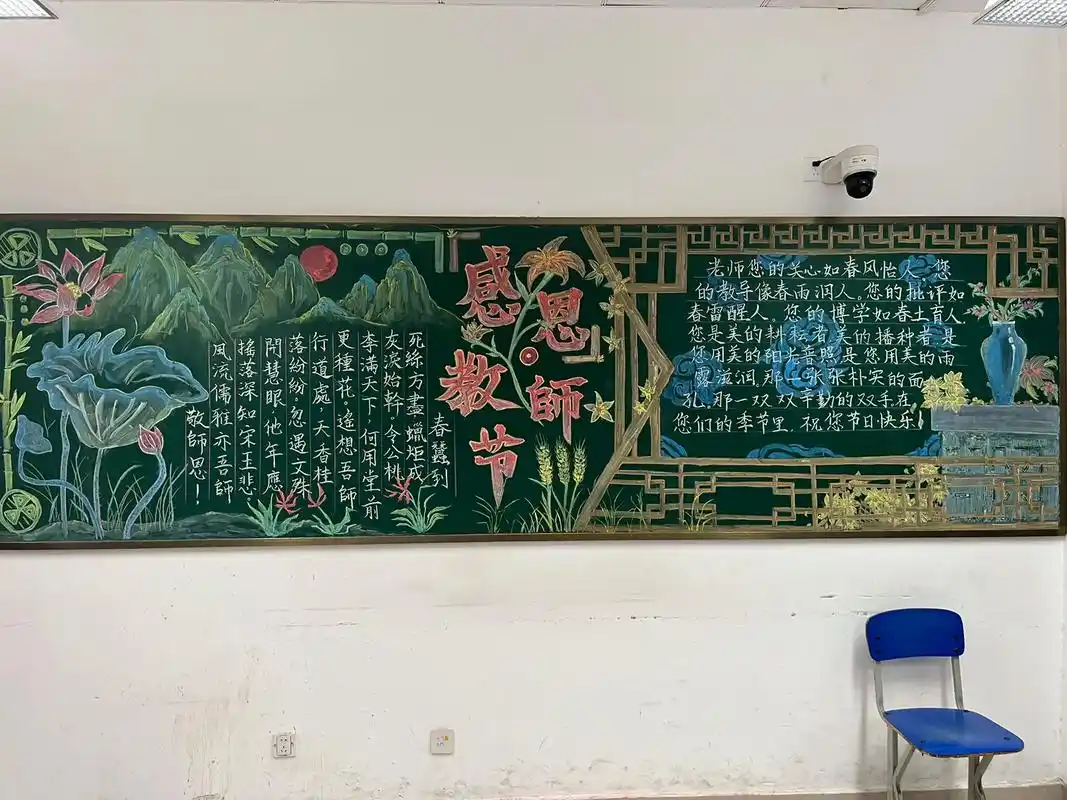 感恩
教師
节
春蠶到
死絲方盡蠟炬成
灰淚始幹，令公桃
李滿天下，何用堂前
更種花。遙想吾師
行道處，天香桂
落紛紛。忽遇文殊
開慧眼，他年應
搖落深知宋玉悲，
風流儒雅亦吾師
敬師恩！
老师您的关心如春风怡人。您
的教导像春雨润人。您的批评如
春雷醒人。您的博学如春土育人
您是美的耕耘者,美的播种者.是
您用美的阳光普照.是您用美的雨
露滋润.那一张张朴实的面
孔,那一双双辛勤的双手.在
您们的季节里.祝您节日快乐!